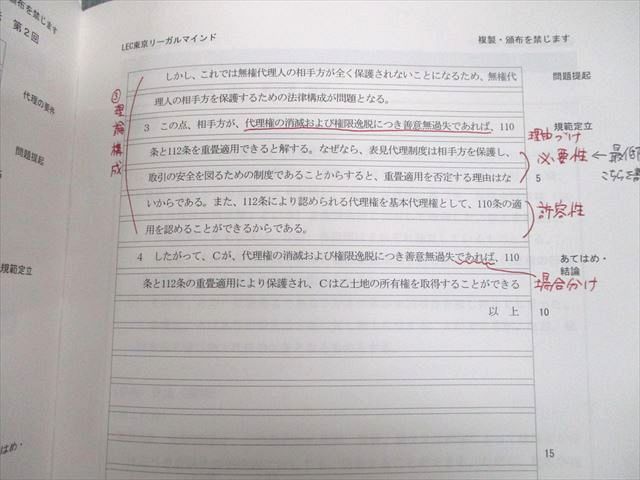 第2回
代理の要件
問題提起
規範定立
LEC東京リーガルマインド
複製・頒布を禁じます
しかし、これでは無権代理人の相手方が全く保護されないことになるため、無権代
問題提起
理人の相手方を保護するための法律構成が問題となる。
3 この点、相手方が、代理権の消滅および権限逸脱につき善意無過失であれば、110
規範定立
理由づけ
条と112条を重畳適用できると解する。なぜなら、表見代理制度は相手方を保護し、
必要性
取引の安全を図るための制度であることからすると、重畳適用を否定する理由はな
5
いからである。また、112条により認められる代理権を基本代理権として、110条の適
許容性
用を認めることができるからである。
4 したがって、Cが、代理権の消滅および権限逸脱につき善意無過失であれば、110
あてはめ・
結論
条と112条の重畳適用により保護され、Cは乙土地の所有権を取得することができる
場合分け
以 上
10
15
③理論構成